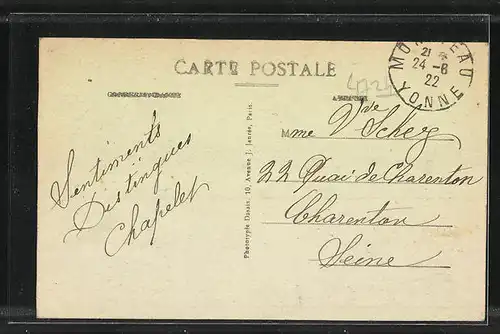 CARTE POSTALE
CORRESPONDANCE
ADRESSE
21
24-8
22
YONNE
Sentiments
Distingués
Chapelet
Phototypie Dussin, 10, Avenue J. Janrès, Paris.
Mme Vve
22 Quai de Charenton
Charenton
Seine